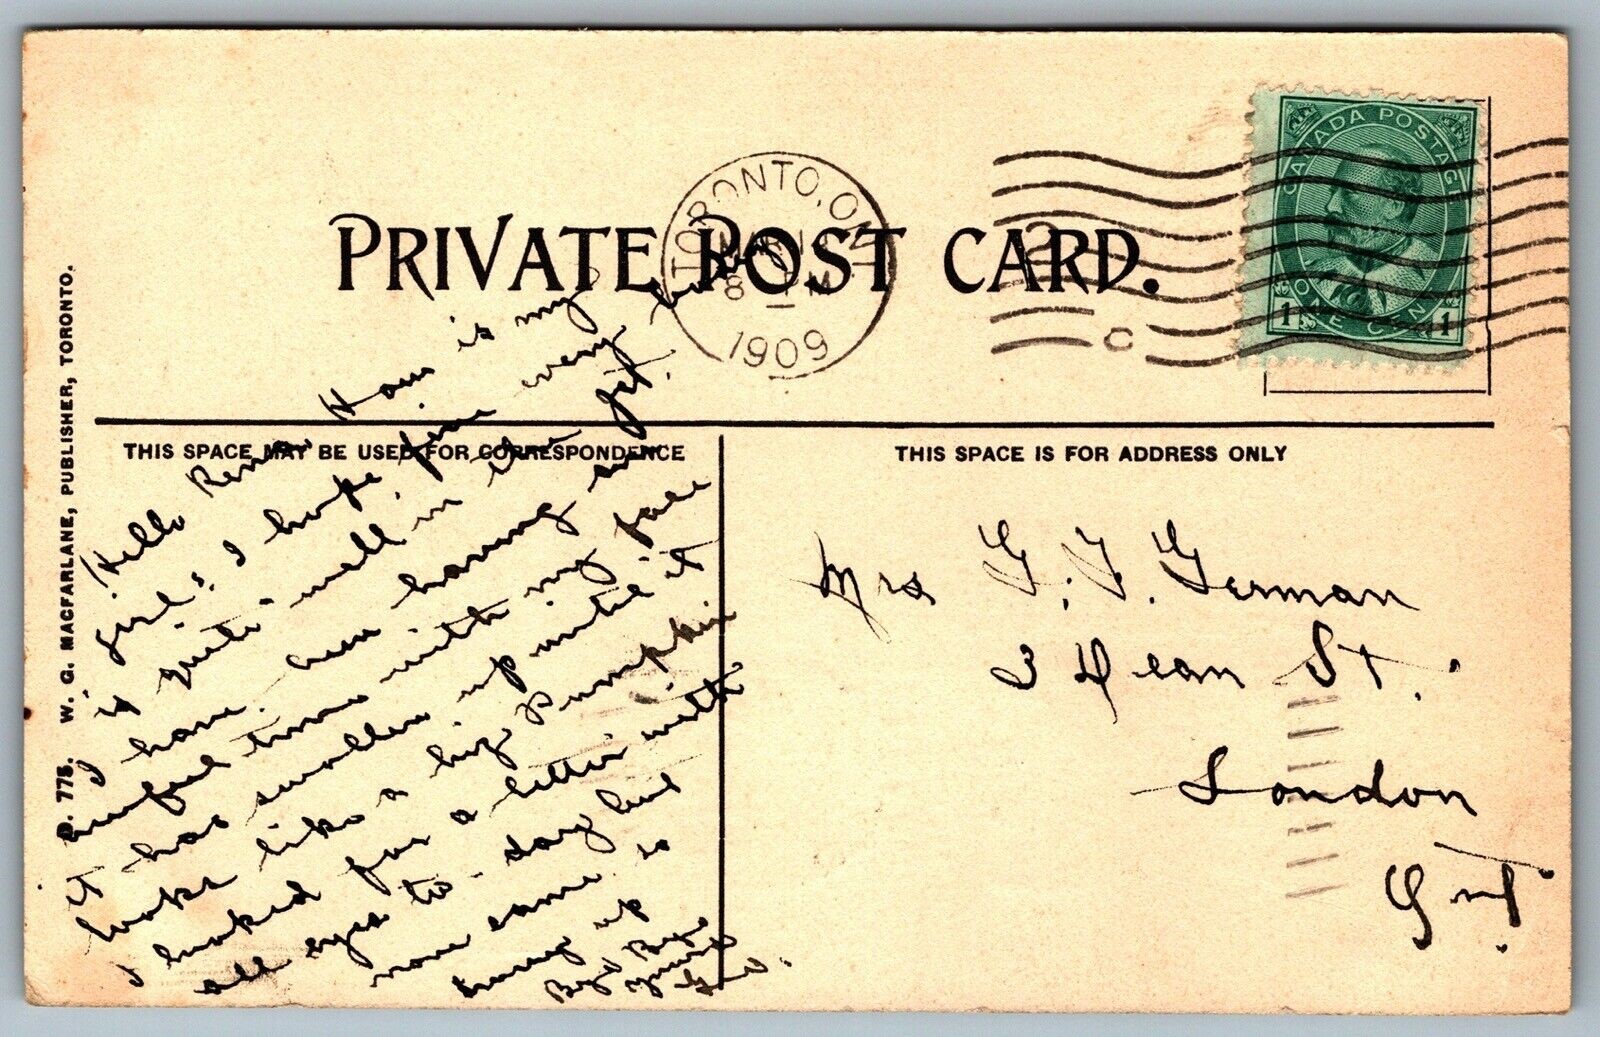 PRIVATE POST CARD.
TORONTO, ONT.
8
M
1909
C
CANADA POSTAGE
1 ONE CENT 1
P. 775. W. G. MACFARLANE, PUBLISHER, TORONTO.
THIS SPACE MAY BE USED FOR CORRESPONDENCE
THIS SPACE IS FOR ADDRESS ONLY
Hello Rena How is my
girl. I hope fine every
is quite well in the
I have been having an
awful time with my face
it has swollen up until it
looks like a big Pumpkin
I looked for a letter with
all eyes to-day but
none came so
hurry up
Bye Bye
Mrs G. F. German
3 Dean St.
London
Ont.